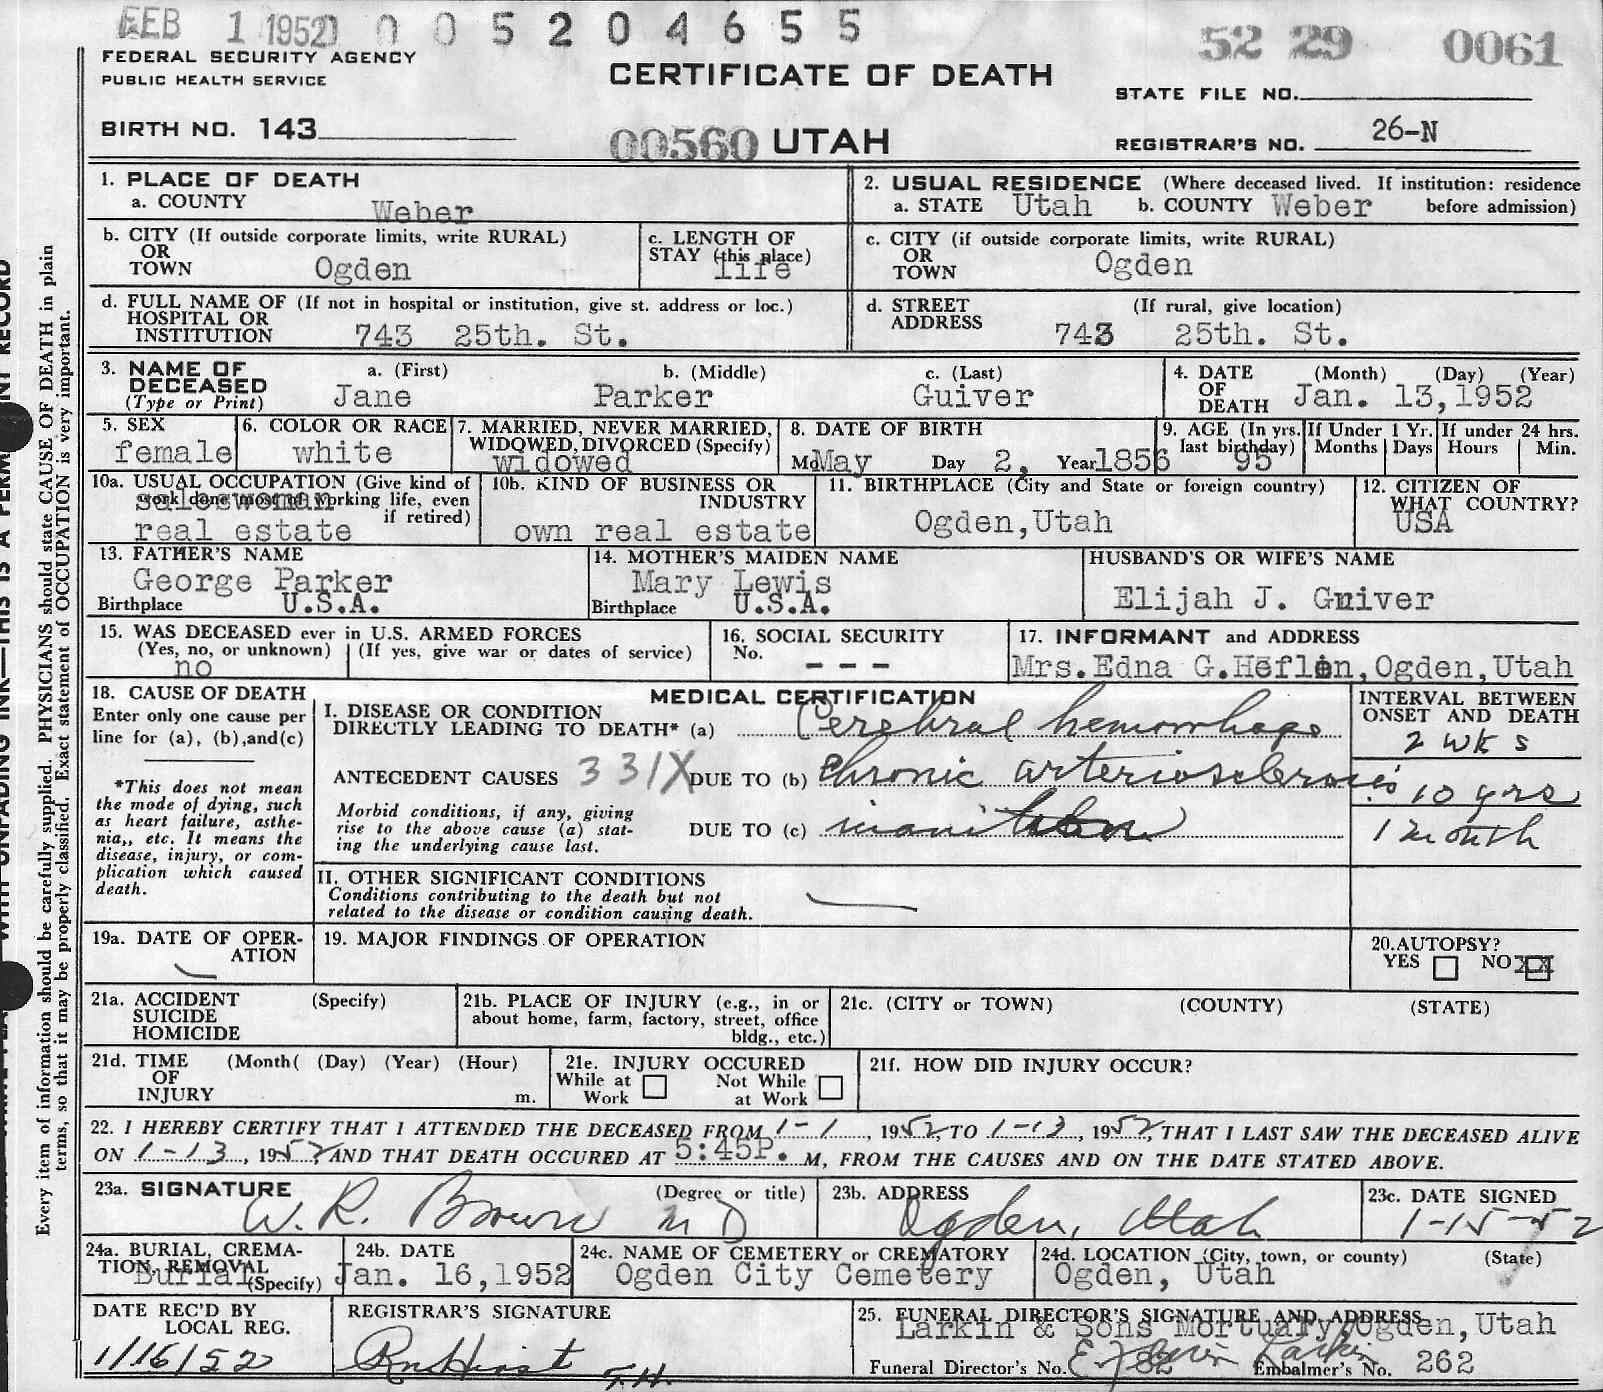 FEB 1 1952 0 0 5 2 0 4 6 5 5
52 29 0061
FEDERAL SECURITY AGENCY
PUBLIC HEALTH SERVICE
CERTIFICATE OF DEATH
STATE FILE NO.
BIRTH NO. 143
00560 UTAH
REGISTRAR'S NO. 26-N
1. PLACE OF DEATH
a. COUNTY Weber
2. USUAL RESIDENCE (Where deceased lived. If institution: residence before admission)
a. STATE Utah b. COUNTY Weber
b. CITY (If outside corporate limits, write RURAL)
OR
TOWN Ogden
c. LENGTH OF
STAY (this place)
life
c. CITY (if outside corporate limits, write RURAL)
OR
TOWN Ogden
d. FULL NAME OF (If not in hospital or institution, give st. address or loc.)
HOSPITAL OR
INSTITUTION 743 25th. St.
d. STREET (If rural, give location)
ADDRESS 743 25th. St.
3. NAME OF
DECEASED
(Type or Print)
a. (First) b. (Middle) c. (Last)
Jane Parker Guiver
4. DATE (Month) (Day) (Year)
OF
DEATH Jan. 13,1952
5. SEX
female
6. COLOR OR RACE
white
7. MARRIED, NEVER MARRIED,
WIDOWED, DIVORCED (Specify)
widowed
8. DATE OF BIRTH
Mo May Day 2, Year 1856
9. AGE (In yrs. last birthday) 95
If Under 1 Yr. Months Days
If under 24 hrs. Hours Min.
10a. USUAL OCCUPATION (Give kind of
work done most of working life, even
if retired)
saleswoman
real estate
10b. KIND OF BUSINESS OR
INDUSTRY
own real estate
11. BIRTHPLACE (City and State or foreign country)
Ogden,Utah
12. CITIZEN OF
WHAT COUNTRY?
USA
13. FATHER'S NAME
George Parker
Birthplace U.S.A.
14. MOTHER'S MAIDEN NAME
Mary Lewis
Birthplace U.S.A.
HUSBAND'S OR WIFE'S NAME
Elijah J. Guiver
15. WAS DECEASED ever in U.S. ARMED FORCES
(Yes, no, or unknown) (If yes, give war or dates of service)
no
16. SOCIAL SECURITY
No. - - -
17. INFORMANT and ADDRESS
Mrs.Edna G.Heflin,Ogden,Utah
18. CAUSE OF DEATH
Enter only one cause per
line for (a), (b),and(c)
*This does not mean
the mode of dying, such
as heart failure, asthe-
nia,, etc. It means the
disease, injury, or com-
plication which caused
death.
MEDICAL CERTIFICATION
I. DISEASE OR CONDITION
DIRECTLY LEADING TO DEATH* (a) Cerebral hemorrhage
ANTECEDENT CAUSES 331X DUE TO (b) chronic arteriosclerosis
Morbid conditions, if any, giving
rise to the above cause (a) stat-
ing the underlying cause last.
DUE TO (c)
INTERVAL BETWEEN
ONSET AND DEATH
2 wks
10 yrs
1 month
II. OTHER SIGNIFICANT CONDITIONS
Conditions contributing to the death but not
related to the disease or condition causing death.
19a. DATE OF OPER-
ATION
19. MAJOR FINDINGS OF OPERATION
20.AUTOPSY?
YES NO XX
21a. ACCIDENT (Specify)
SUICIDE
HOMICIDE
21b. PLACE OF INJURY (e.g., in or
about home, farm, factory, street, office
bldg., etc.)
21c. (CITY or TOWN) (COUNTY) (STATE)
21d. TIME (Month( (Day) (Year) (Hour)
OF
INJURY m.
21e. INJURY OCCURED
While at Work Not While at Work
21f. HOW DID INJURY OCCUR?
22. I HEREBY CERTIFY THAT I ATTENDED THE DECEASED FROM 1-1, 1952, TO 1-13, 1952, THAT I LAST SAW THE DECEASED ALIVE
ON 1-13, 1952 AND THAT DEATH OCCURED AT 5:45P. M, FROM THE CAUSES AND ON THE DATE STATED ABOVE.
23a. SIGNATURE (Degree or title)
W. R. Brown MD
23b. ADDRESS
Ogden, Utah
23c. DATE SIGNED
1-15-52
24a. BURIAL, CREMA-
TION, REMOVAL
(Specify)
Burial
24b. DATE
Jan. 16,1952
24c. NAME OF CEMETERY or CREMATORY
Ogden City Cemetery
24d. LOCATION (City, town, or county) (State)
Ogden, Utah
DATE REC'D BY
LOCAL REG.
1/16/52
REGISTRAR'S SIGNATURE
25. FUNERAL DIRECTOR'S SIGNATURE AND ADDRESS
Larkin & Sons Mortuary,Ogden,Utah
Funeral Director's No. 82 Embalmer's No. 262
Every item of information should be carefully supplied. PHYSICIANS should state CAUSE OF DEATH in plain
terms, so that it may be properly classified. Exact statement of OCCUPATION is very important.